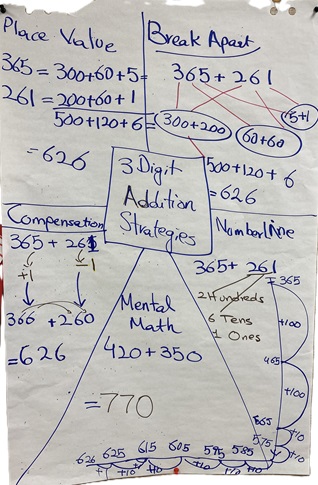 Place Value
365 = 300+60+5=
261 = 200+60+1
500+120+6=
=626
Break Apart
365 + 261
5+1
300+200
60+60
500+120+6
=626
3 Digit
Addition
Strategies
Compensation
365 + 261
+1 -1
366 +260
=626
Mental
Math
420+350
=770
Numberline
365+ 261
2 Hundreds
6 Tens
1 Ones
365
+100
465
+100
565
+10
575
+10
585
595
605
615
625
626
+10
+10
+10
+10
+1